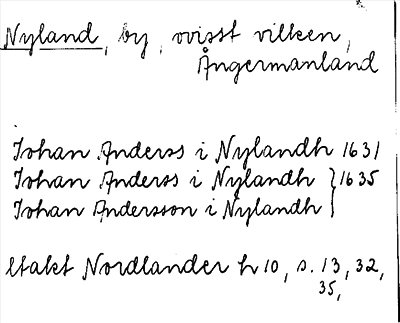 Nyland, by, ovisst vilken,
Ångermanland
Johan Anderss i Nylandh 1631
Johan Anderss i Nylandh } 1635
Johan Andersson i Nylandh
Utakt Nordlander h 10, s. 13, 32,
35,